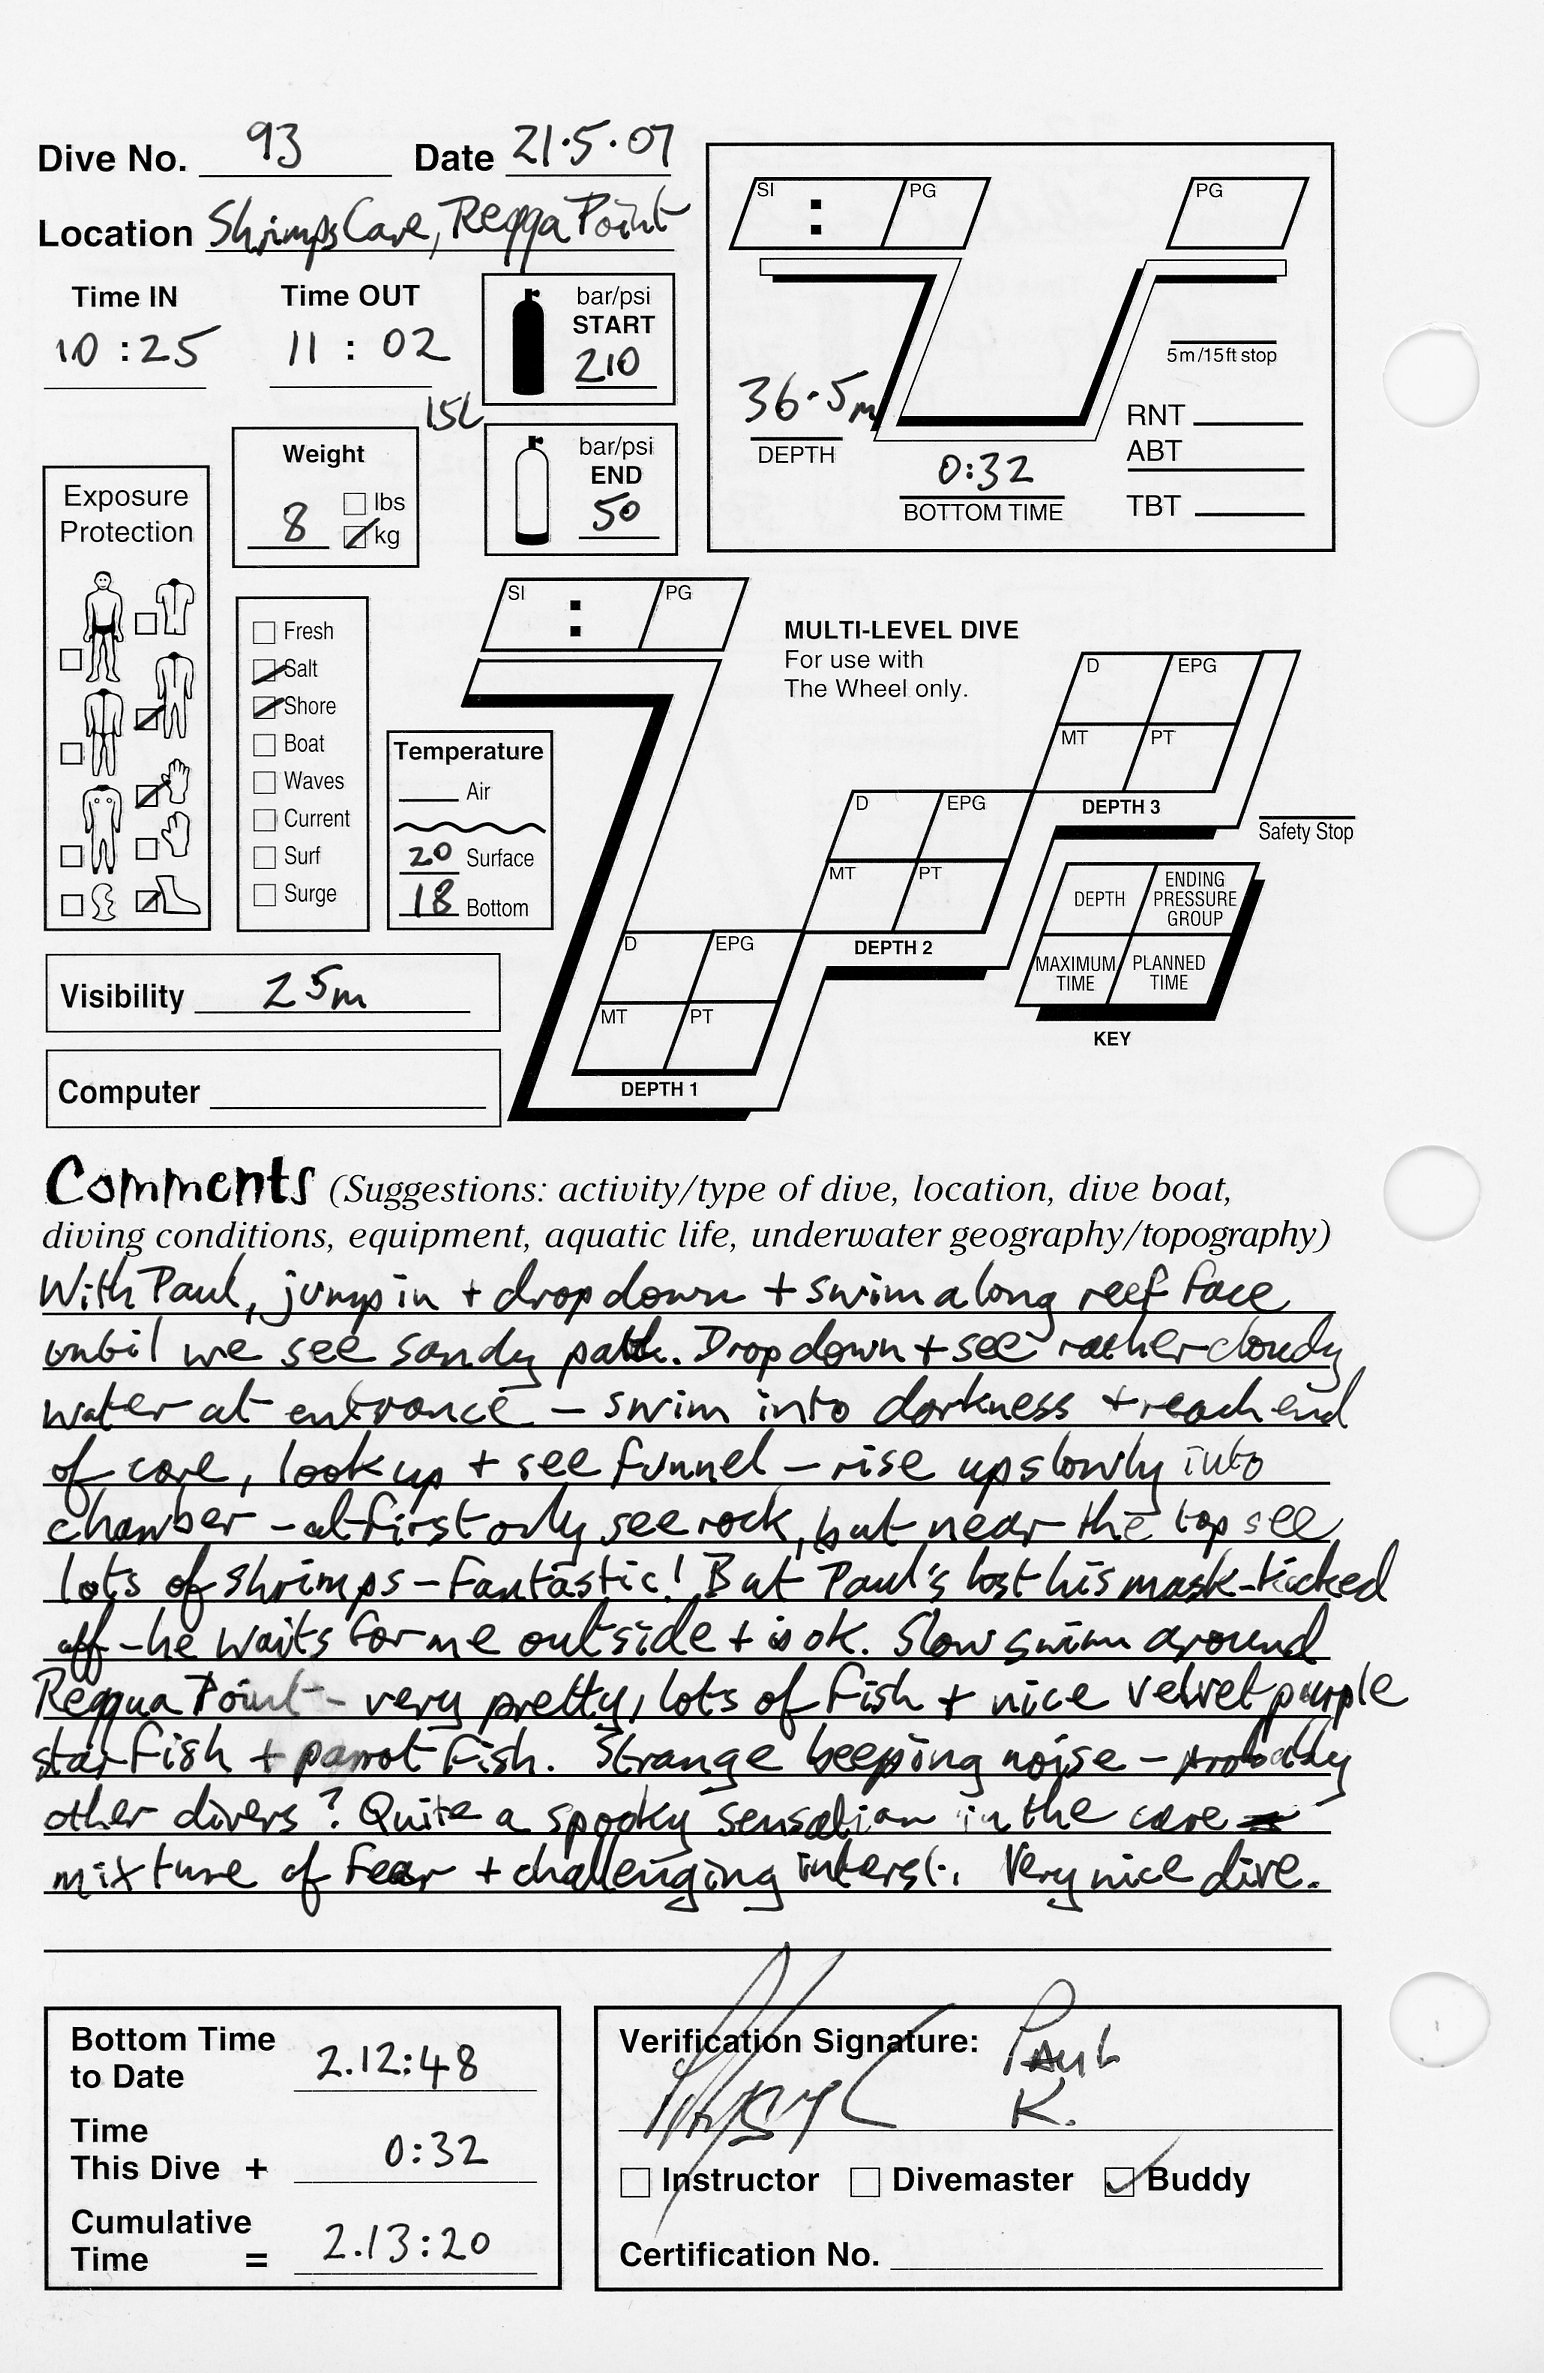 Dive No. 93 Date 21.5.07
Location Shrimps Cave, Reqqa Point
Time IN Time OUT
10:25 11:02
bar/psi
START
210
15L
bar/psi
END
50
Weight
8
lbs
kg
Exposure
Protection
Fresh
Salt
Shore
Boat
Waves
Current
Surf
Surge
Temperature
Air
20 Surface
18 Bottom
Visibility 25m
Computer
SI : PG PG
5m/15ft stop
36.5m
DEPTH
0:32
BOTTOM TIME
RNT
ABT
TBT
SI : PG
MULTI-LEVEL DIVE
For use with
The Wheel only.
D EPG
MT PT
DEPTH 3
Safety Stop
D EPG
MT PT
DEPTH 2
D EPG
MT PT
DEPTH 1
DEPTH ENDING PRESSURE GROUP
MAXIMUM TIME PLANNED TIME
KEY
Comments (Suggestions: activity/type of dive, location, dive boat,
diving conditions, equipment, aquatic life, underwater geography/topography)
With Paul, jump in + drop down + swim along reef face
until we see sandy path. Drop down + see rather cloudy
water at entrance – swim into darkness + reach end
of cave, look up + see funnel – rise up slowly into
chamber – at first only see rock, but near the top see
lots of shrimps – Fantastic! But Paul's lost his mask – kicked
off – he waits for me outside + is ok. Slow swim around
Reqqua Point – very pretty, lots of fish + nice velvet purple
starfish + parrot fish. Strange beeping noise – probably
other divers? Quite a spooky sensation in the cave
mixture of fear + challenging interest. Very nice dive.
Bottom Time
to Date 2.12:48
Time
This Dive + 0:32
Cumulative
Time = 2.13:20
Verification Signature: PAUL
K.
Instructor Divemaster Buddy
Certification No.